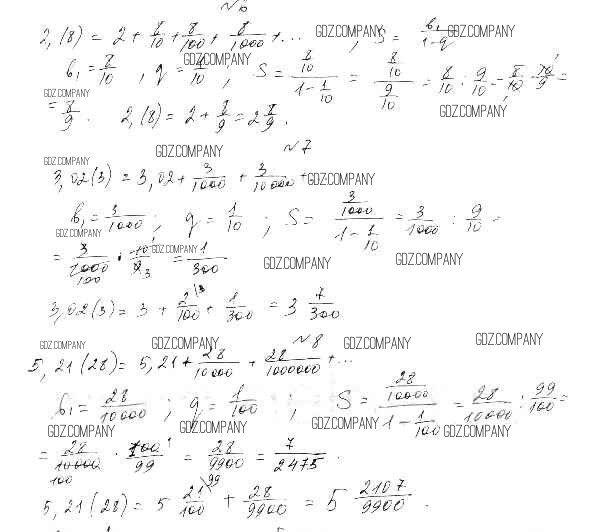 №6
2,(8) = 2 + 8/10 + 8/100 + 8/1000 + ... GDZ.COMPANY , S = b₁/(1-q) GDZ.COMPANY
b₁ = 8/10 , q = 1/10 GDZ.COMPANY , S = (8/10)/(1 - 1/10) = (8/10)/(9/10) = 8/10 : 9/10 = 8/10 · 10/9 =
GDZ.COMPANY
= 8/9 . 2,(8) = 2 + 8/9 = 2 8/9 . GDZ.COMPANY
GDZ.COMPANY №7
GDZ.COMPANY
3,02(3) = 3,02 + 3/1000 + 3/10000 + GDZ.COMPANY
b₁ = 3/1000 ; q = 1/10 ; S = (3/1000)/(1 - 1/10) = 3/1000 : 9/10 =
GDZ.COMPANY
= 3/1000 · 10/9 = 1/300 GDZ.COMPANY GDZ.COMPANY GDZ.COMPANY
3,02(3) = 3 + 2/100 + 1/300 = 3 7/300
№8
GDZ.COMPANY GDZ.COMPANY GDZ.COMPANY GDZ.COMPANY
5,21(28) = 5,21 + 28/10000 + 28/1000000 + ...
b₁ = 28/10000 ; q = 1/100 ; S = (28/10000)/(1 - 1/100) = 28/10000 : 99/100 =
GDZ.COMPANY GDZ.COMPANY GDZ.COMPANY GDZ.COMPANY
= 28/10000 · 100/99 = 28/9900 = 7/2475 .
5,21(28) = 5 21/100 + 28/9900 = 5 2107/9900 .